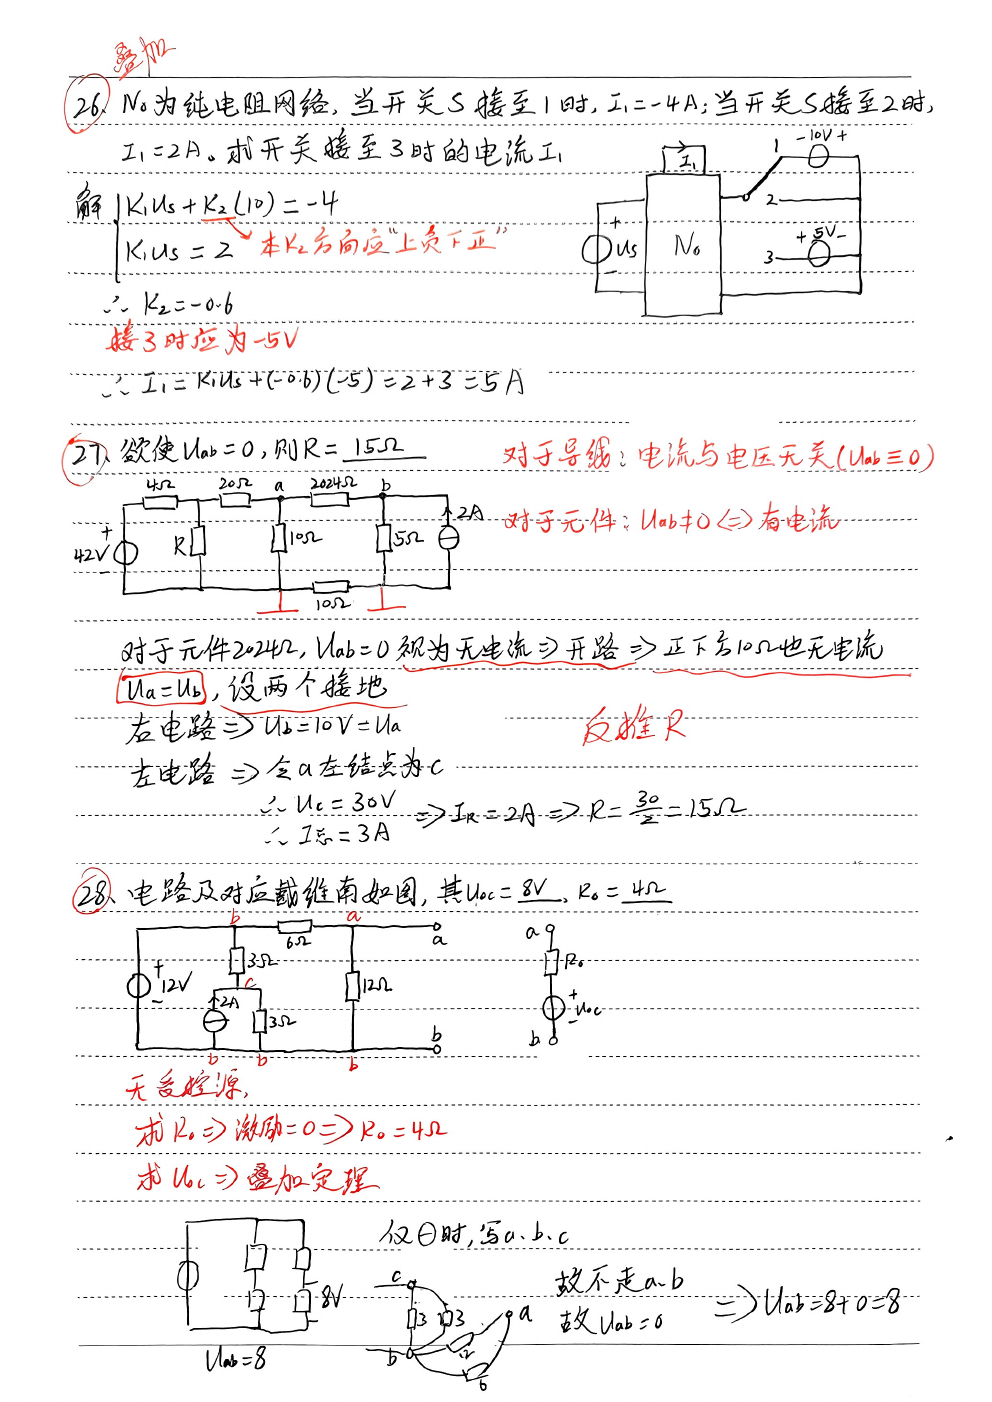 叠加
26、N₀为纯电阻网络,当开关S接至1时,I₁=-4A;当开关S接至2时,
I₁=2A。求开关接至3时的电流I₁
解 K₁Us+K₂(10)=-4
K₁Us=2
本K₂方向应"上负下正"
∴ K₂=-0.6
接3时应为-5V
∴ I₁=K₁Us+(-0.6)(-5)=2+3=5A
I₁
N₀
+
Us
-
1
-10V+
2
+5V-
3
27、欲使Uab=0,则R=15Ω
对于导线:电流与电压无关(Uab≡0)
对于元件:Uab≠0⇔有电流
4Ω
20Ω
a
2024Ω
b
+
42V
-
R
10Ω
5Ω
2A
10Ω
对于元件2024Ω,Uab=0视为无电流⇒开路⇒正下方10Ω也无电流
Ua=Ub,设两个接地
右电路⇒Ub=10V=Ua
反推R
左电路⇒令a左结点为c
∴Uc=30V
∴I总=3A
⇒IR=2A⇒R=30/2=15Ω
28、电路及对应戴维南如图,其Uoc=8V、R₀=4Ω
b
6Ω
a
a
+
12V
-
3Ω
c
2A
3Ω
12Ω
b
b
b
b
a
R₀
+
Uoc
-
b
无受控源,
求R₀⇒激励=0⇒R₀=4Ω
求Uoc⇒叠加定理
8V
Uab=8
仅⊖时,写a、b、c
c
3
3
a
b
12
6
故不走a、b
故Uab=0
⇒Uab=8+0=8